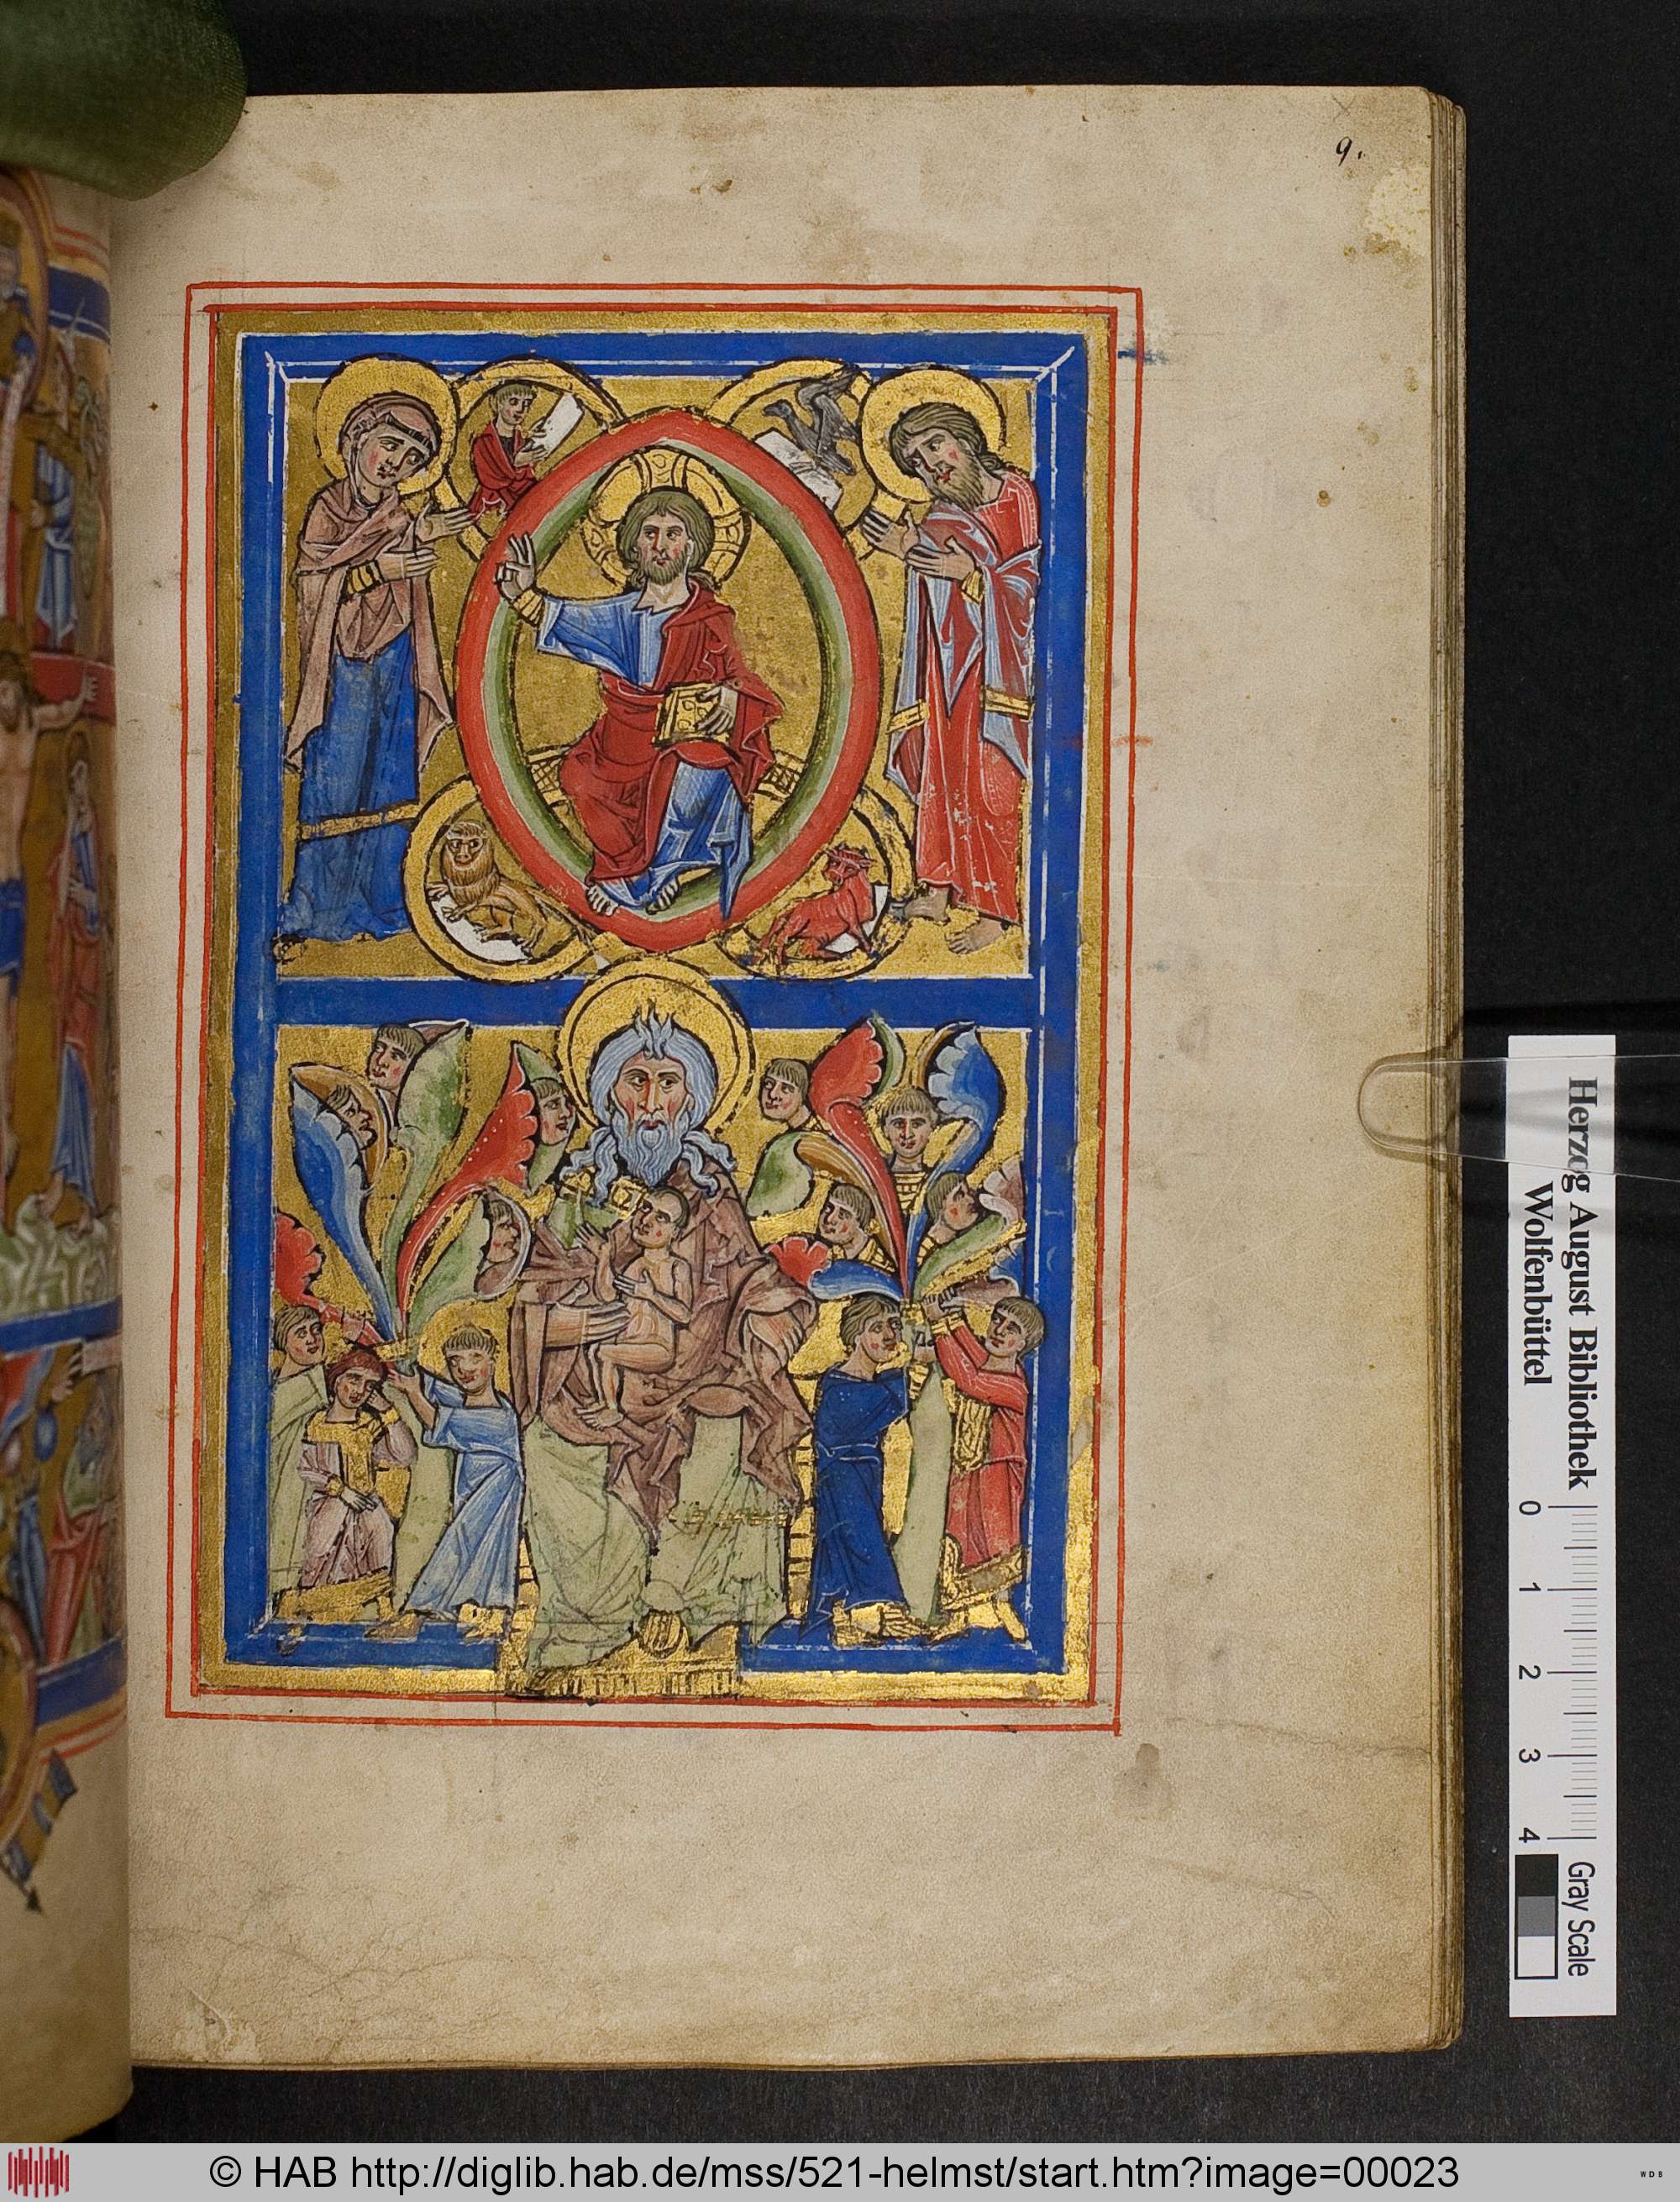 9.
Herzog August Bibliothek
Wolfenbüttel
0 1 2 3 4
Gray Scale
© HAB http://diglib.hab.de/mss/521-helmst/start.htm?image=00023
WDB